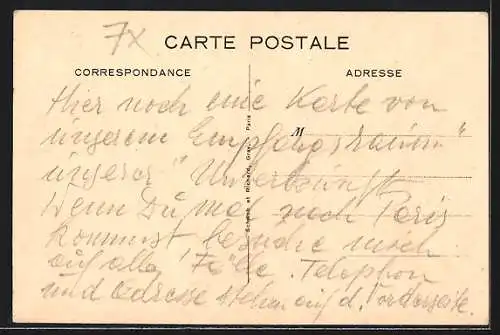 7x
CARTE POSTALE
CORRESPONDANCE
ADRESSE
Hier noch eine Karte von
unserem Empfangsraum"
unserer" Unterkunft
Wenn Du mal nach Paris
kommst besuche mich
auf alle Fälle. Telephon
und Adresse stehen auf d. Vorderseite.
M
Schmit et Richard, Grav. Paris